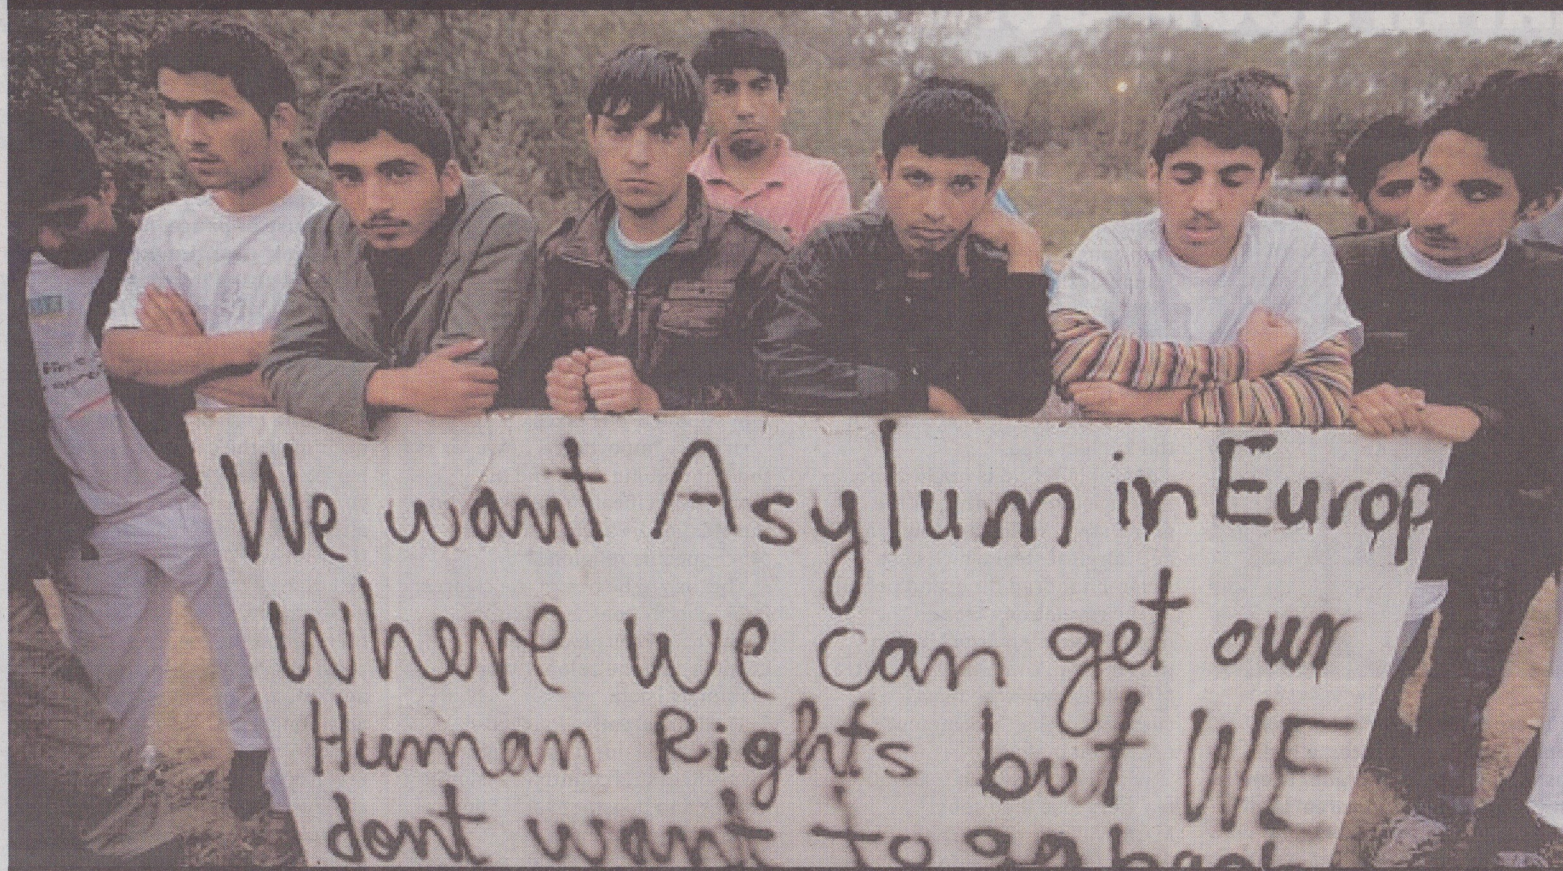 We want Asylum in Europ
where we can get our
Human Rights but WE
dont want to go back